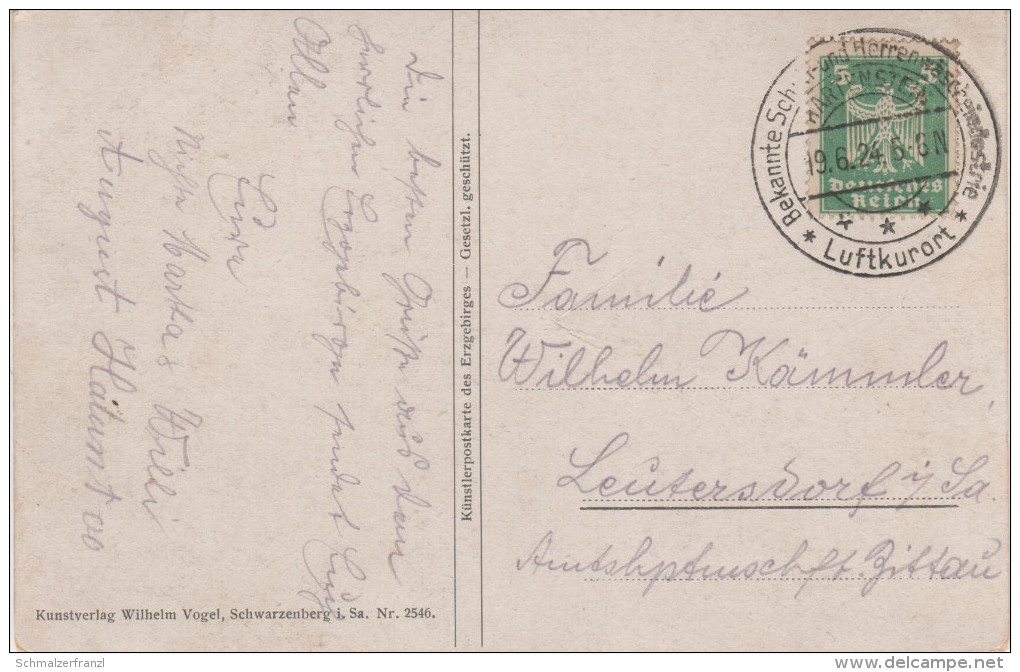 Die besten Grüße aus dem
herrlichen Erzgebirge sendet Euch
Allen
Eure
Nichte Martha & Willi
August
Künstlerpostkarte des Erzgebirges — Gesetzl. geschützt.
Kunstverlag Wilhelm Vogel, Schwarzenberg i. Sa. Nr. 2546.
5 5
Deutsches
Reich
Bekannte und Herren
HARTENSTEIN
19.6.24.5-6N
* Luftkurort *
Familie
Wilhelm Kämmler,
Leutersdorf i/Sa.
Amtshptmschft. Zittau
Schmalzerfranzl
www.delcampe.net